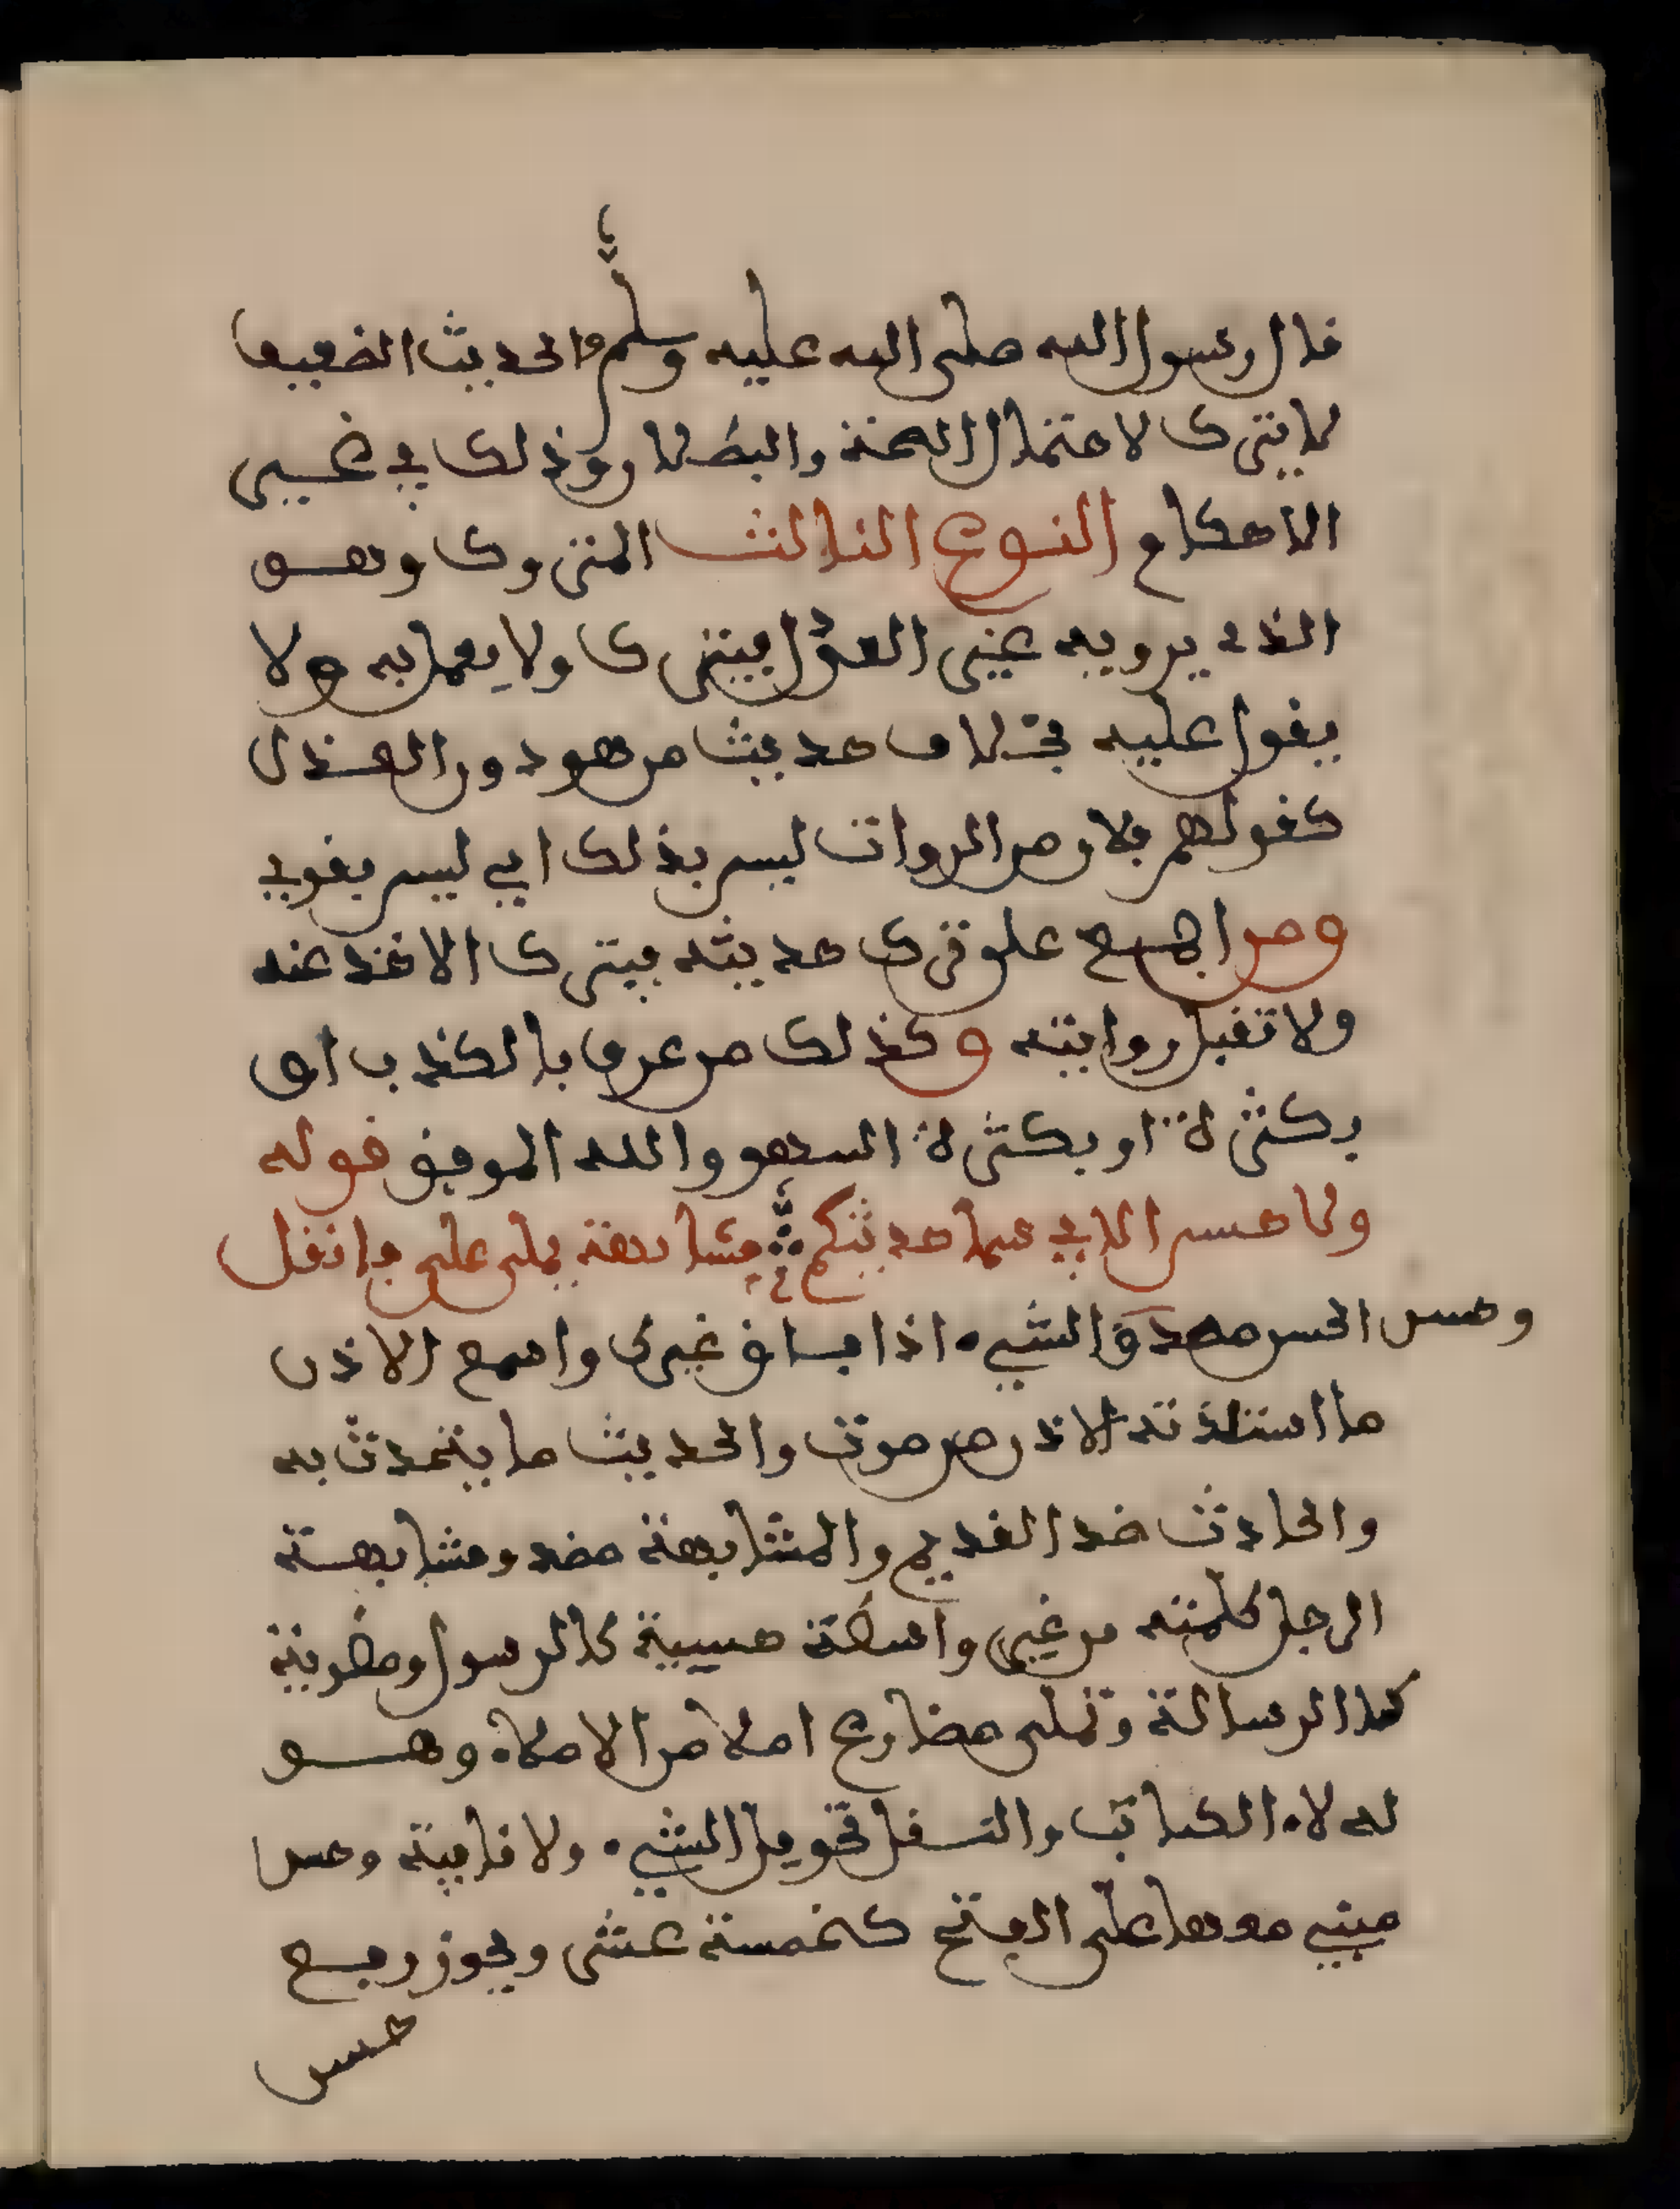 قال رسول الله صلى الله عليه وسلم والحديث الضعيف
لا يترك لاحتمال الصحة والبطلان وذلك في غير
الاحكام النوع الثالث المتروك وهو
الذي يرويه غير العدل فيترك ولا يعمل به ولا
يقول عليه بخلاف حديث من هو دون العدل
كقولهم فلان من الروات ليس بذلك اي ليس بقوي
ومن اجمع على ترك حديثه فيترك الاخذ عنه
ولا تقبل روايته وكذلك من عرف بالكذب او
بكثرة او بكثرة السهو والله الموفق قوله
ولا حسن الا في سماع حديثكم مشافهة يملى علي فانقل
وحسن الحسن الشيء اذا فاق غيره واسمع الاذن
ما استلذته الاذن من صوت والحديث ما يتحدث به
والحادث ضد القديم والمشافهة مصدر ومشافهة
الرجل كلمته من غير واسطة حسية كالرسول ومعنوية
كالرسالة وتملى مضارع املا من الاملاء وهو
املاء الكتاب والنقل تحويل الشيء ولا نافية وحسن
مبني معها على الفتح كخمسة عشر ويجوز رفع
حسن